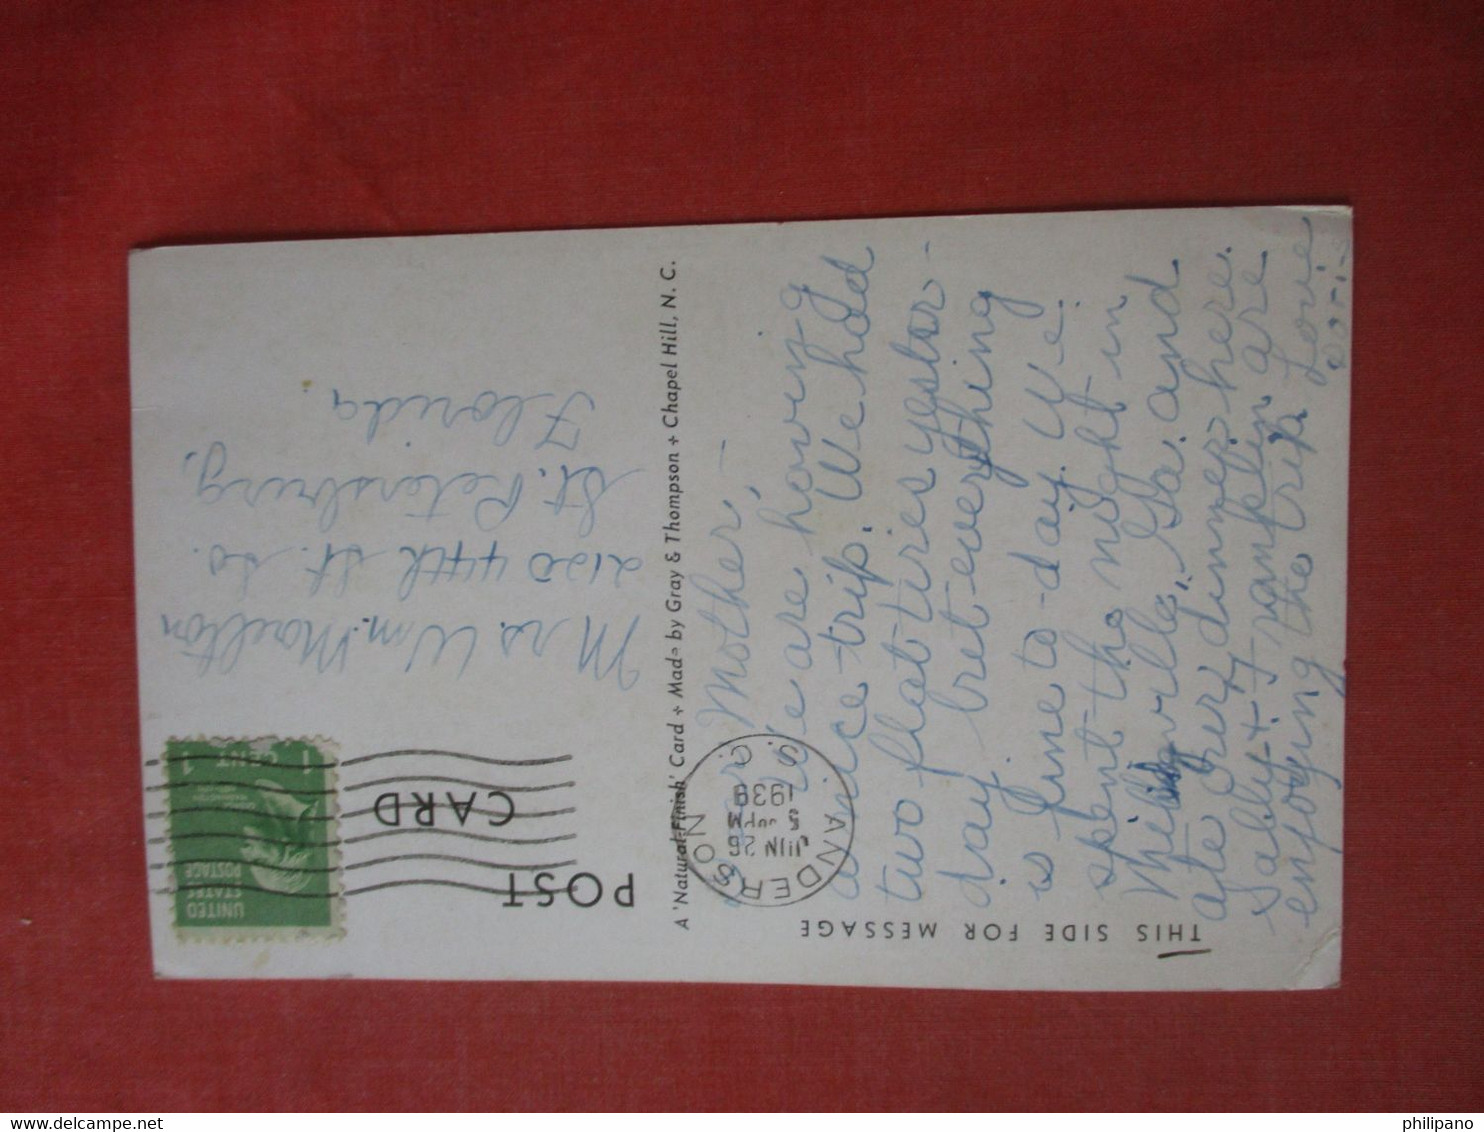 THIS SIDE FOR MESSAGE
Dear Mother,-
We are having
a nice trip. We had
two flat tires yester-
day but everything
is fine to-day. We
spent the night in
Milledgeville, Ga. and
ate our dinner here.
Sally + Franklin are
enjoying the trip. Love
Doris
ANDERSON
S.C.
JUN 26
5 PM
1939
A 'Natural-Finish' Card + Made by Gray & Thompson + Chapel Hill, N. C.
POST
CARD
UNITED
STATES
POSTAGE
1 CENT 1
Mrs. Wm. Moulton
2120 44th St. So.
St. Petersburg,
Florida.
www.delcampe.net
philipano